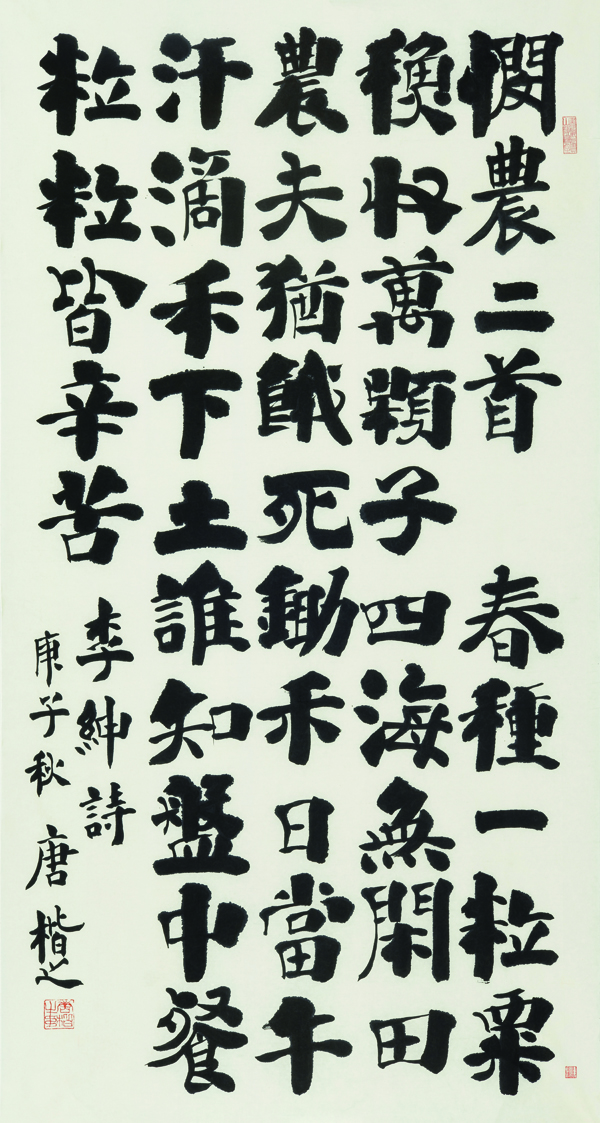 憫農二首 春種一粒粟
穐收萬顆子四海無閑田
農夫猶餓死鋤禾日當午
汗滴禾下土誰知盤中餐
粒粒皆辛苦 李紳詩
庚子秋 唐楷之